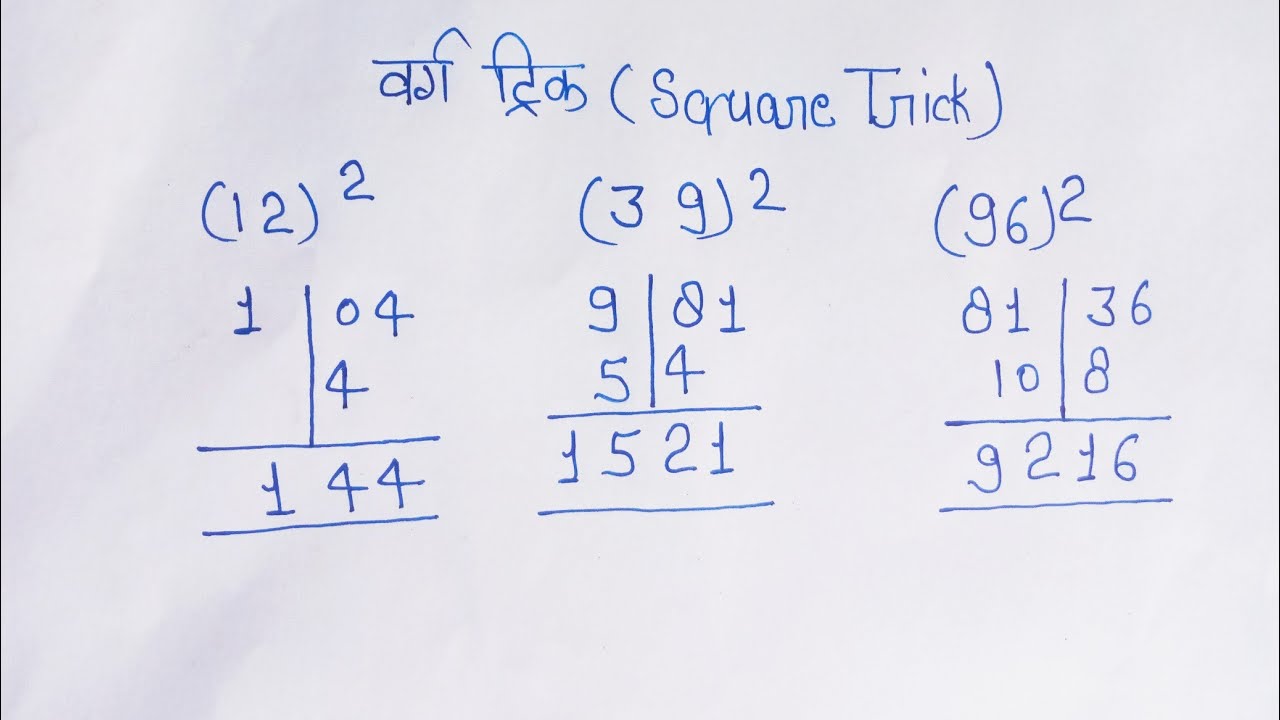 वर्ग ट्रिक (Square Trick)
(12)² (39)² (96)²
1 | 04 9 | 81 81 | 36
| 4 5 | 4 10 | 8
144 1521 9216